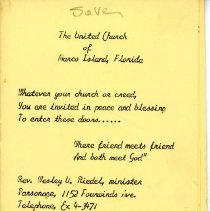 Save
The United Church
of
Marco Island, Florida
Whatever your church or creed,
You are invited in peace and blessing
To enter these doors......
"Where friend meets friend
And both meet God"
Rev. Wesley U. Riedel, minister
Parsonage, 1152 Fourwinds Ave.
Telephone, Ex 4-3471